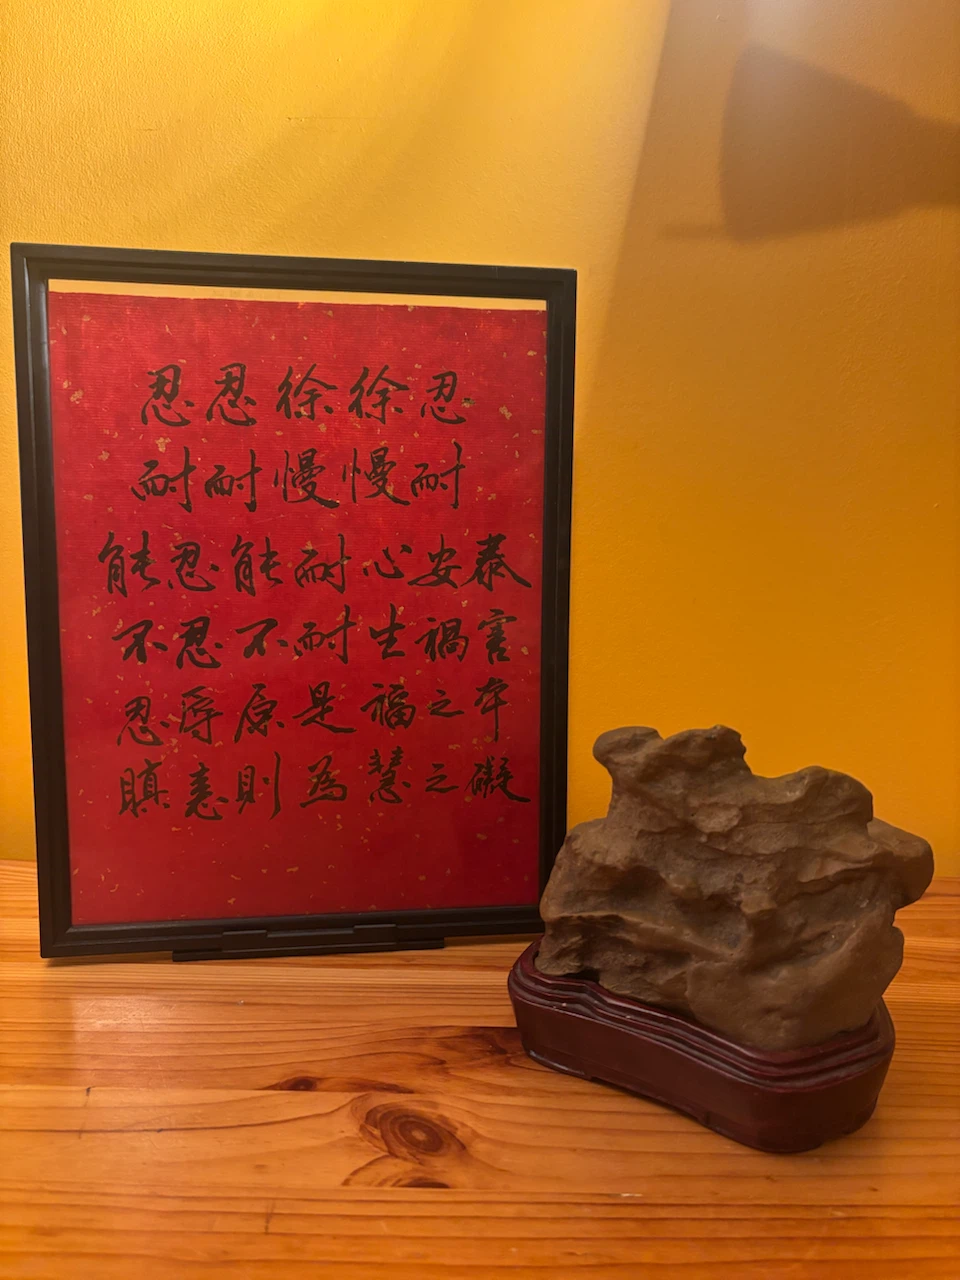 忍忍徐徐忍
耐耐慢慢耐
能忍能耐心安泰
不忍不耐生禍害
忍辱原是福之本
瞋恚則為慧之礙